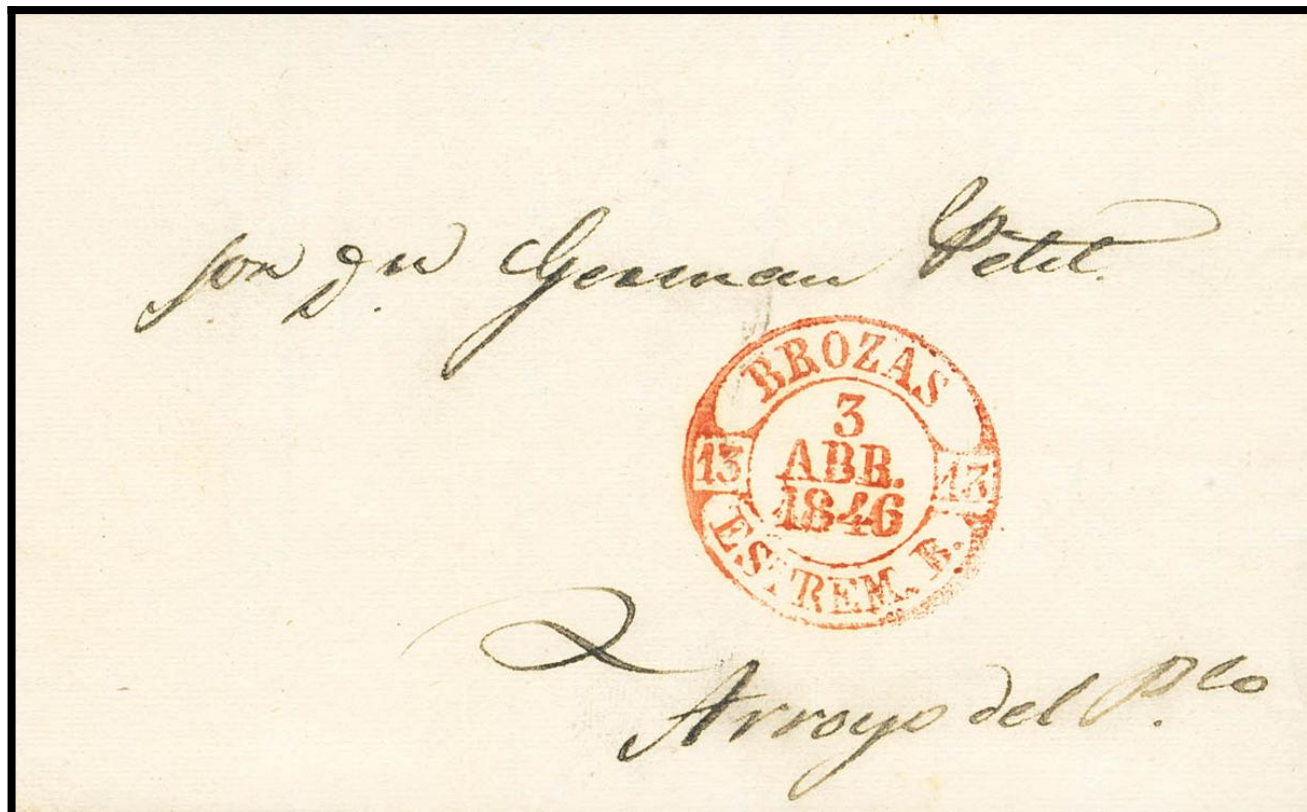 Sor Dn German Petit.
BROZAS
3
ABR.
1846
13 13
ESTREM. B.
Arroyo del P.co